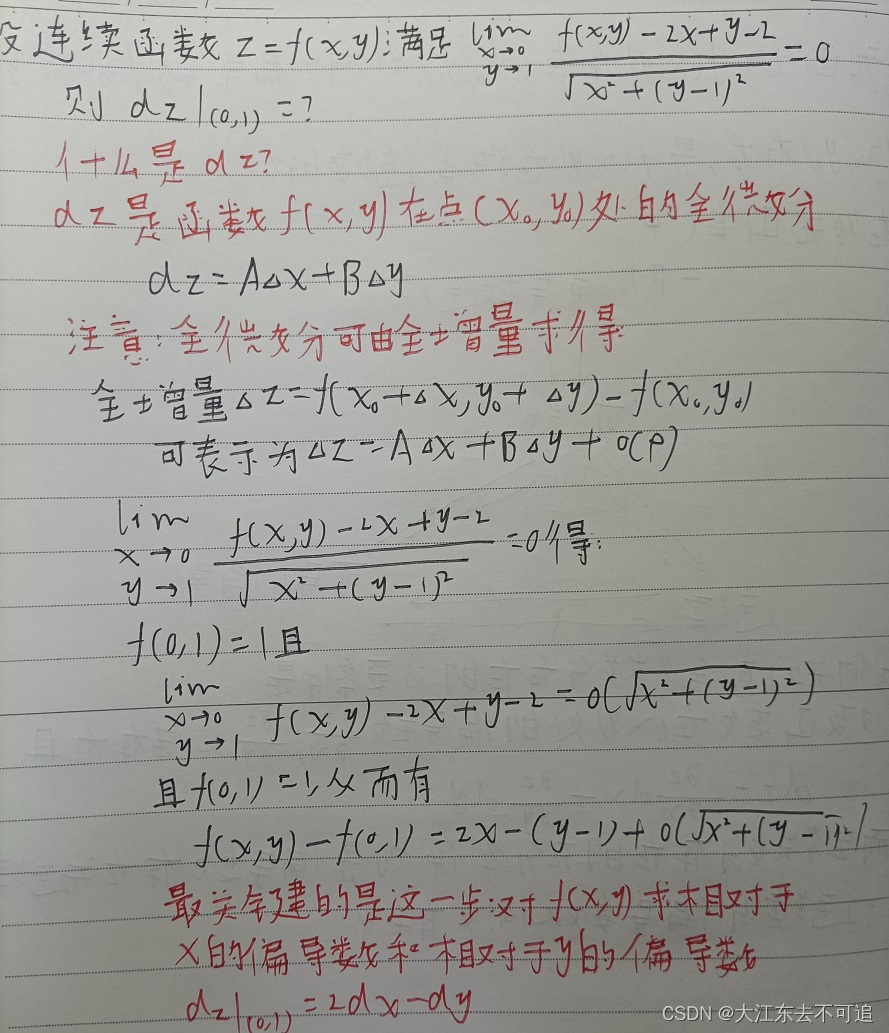 设连续函数 z=f(x,y)满足 lim x→0 y→1 f(x,y)-2x+y-2 / √x²+(y-1)² =0
则 dz|(0,1)=?
什么是dz?
dz是函数f(x,y)在点(x₀,y₀)处的全微分
dz=AΔx+BΔy
注意:全微分可由全增量求得
全增量Δz=f(x₀+Δx,y₀+Δy)-f(x₀,y₀)
可表示为Δz=AΔx+BΔy+o(ρ)
lim x→0 y→1 f(x,y)-2x+y-2 / √x²+(y-1)² =0得:
f(0,1)=1且
lim x→0 y→1 f(x,y)-2x+y-2=0(√x²+(y-1)²)
且f(0,1)=1,从而有
f(x,y)-f(0,1)=2x-(y-1)+0(√x²+(y-1)²)
最关键的是这一步:对f(x,y)求相对于
x的偏导数和相对于y的偏导数
dz|(0,1)=2dx-dy
CSDN @大江东去不可追